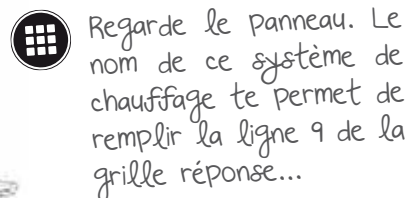 Regarde le panneau. Le
nom de ce système de
chauffage te permet de
remplir la ligne 9 de la
grille réponse...